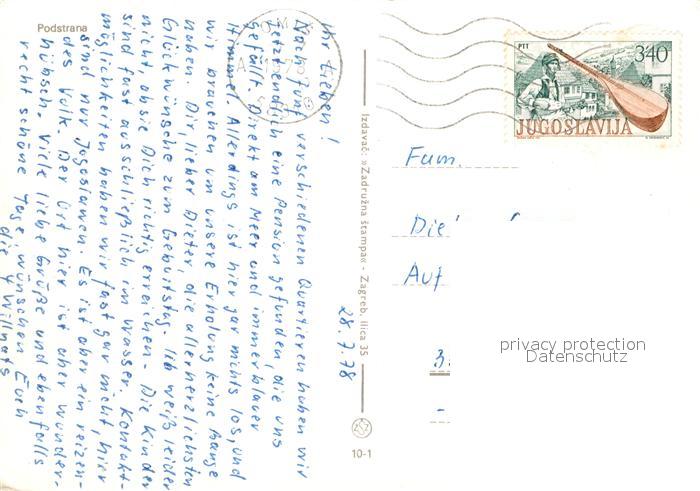 Podstrana
Ihr Lieben!
Nach fünf verschiedenen Quartieren haben wir
letztendlich eine Pension gefunden, die uns
gefällt. Direkt am Meer und immer blauer
Himmel. Allerdings ist hier gar nichts los, und
wir brauchen um unsere Erholung keine Bange
haben. Dir, lieber Dieter, die allerherzlichsten
Glückwünsche zum Geburtstag. Ich weiß leider
nicht, ob sie Dich richtig erreichen. - Die Kinder
sind fast ausschließlich im Wasser. Kontakt-
möglichkeiten haben wir fast gar nicht, hier
sind nur Jugoslawen. Es ist aber ein reizen-
des Volk. Der Ort hier ist aber wunder-
hübsch. Viele liebe Grüße und ebenfalls
recht schöne Tage, wünschen Euch
die 4 Willnats
28.7.78
Izdavač: »Zadružna štampa« - Zagreb, Ilica 35
10-1
PTT
340
JUGOSLAVIJA
Fam.
Die
Auf
3
-
privacy protection
Datenschutz